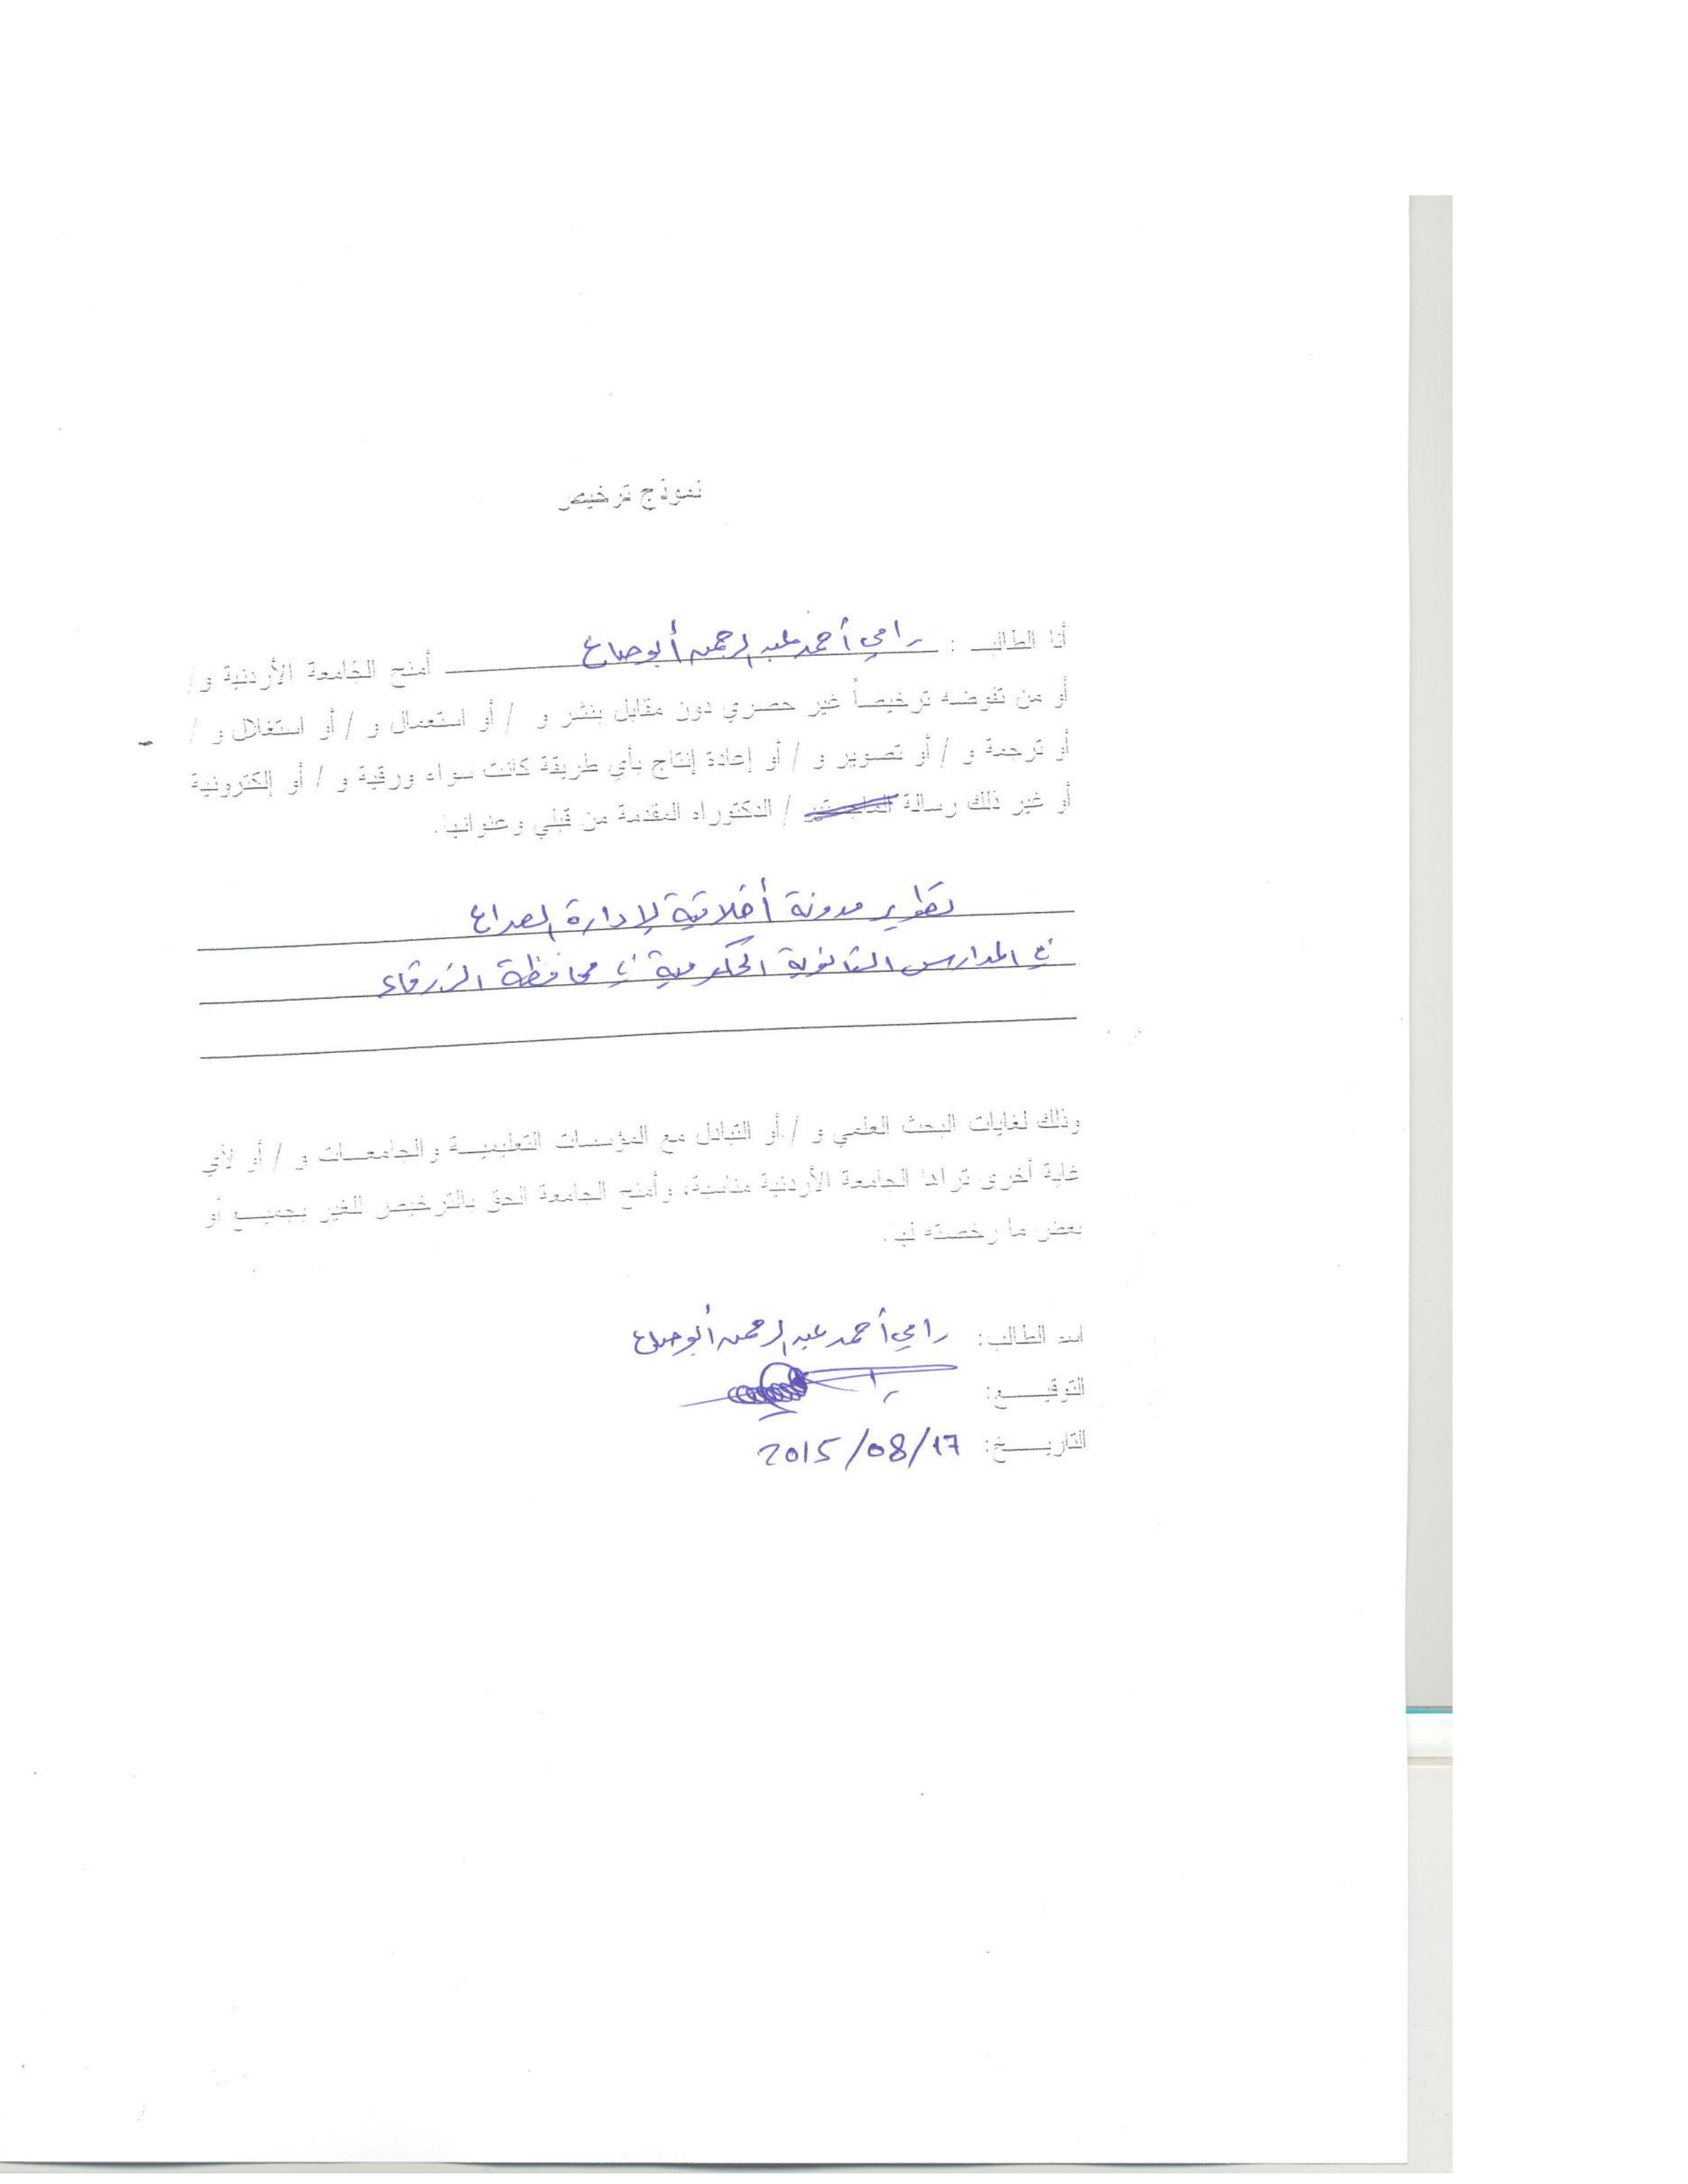 نموذج ترخيص
أنا الطالب : رامي أحمد عبد الرحمن أبو صاع أمنح الجامعة الأردنية و /
أو من تفوضه ترخيصاً غير حصري دون مقابل بنشر و / أو استعمال و / أو استغلال و /
أو ترجمة و / أو تصوير و / أو إعادة إنتاج بأي طريقة كانت سواء ورقية و / أو إلكترونية
أو غير ذلك رسالة الماجستير / الدكتوراه المقدمة من قبلي وعنوانها.
تطوير مدونة أخلاقية لإدارة الصراع
في المدارس الثانوية الحكومية في محافظة الزرقاء
وذلك لغايات البحث العلمي و / أو التبادل مع المؤسسات التعليمية والجامعات و / أو لأي
غاية أخرى تراها الجامعة الأردنية مناسبة، وأمنح الجامعة الحق بالترخيص للغير بجميع أو
بعض ما رخصته لها.
اسم الطالب: رامي أحمد عبد الرحمن أبو صاع
التوقيع:
التاريخ: 2015/08/17